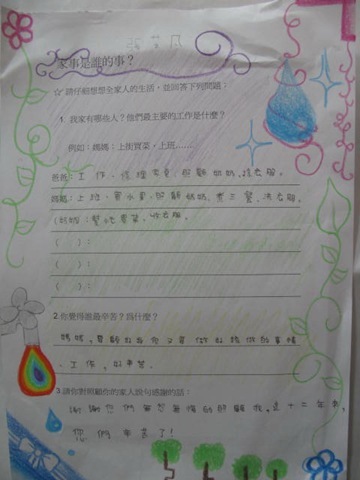 家事是誰的事?
☆ 請仔細想想全家人的生活,並回答下列問題:
1. 我家有哪些人?他們最主要的工作是什麼?
例如:媽媽:上街買菜、上班……
爸爸:工作、修理家具、照顧奶奶、拖衣服。
媽媽:上班、買水果、照顧媽媽、煮三餐、洗衣服。
幫忙買菜、收衣服。
( ):
( ):
( ):
2.你覺得誰最辛苦?為什麼?
媽媽,要顧
工作,好辛苦。
3.請你對照顧你的家人說句感謝的話:
謝謝您們無怨無悔的照顧我,這十二年來,
您們辛苦了!